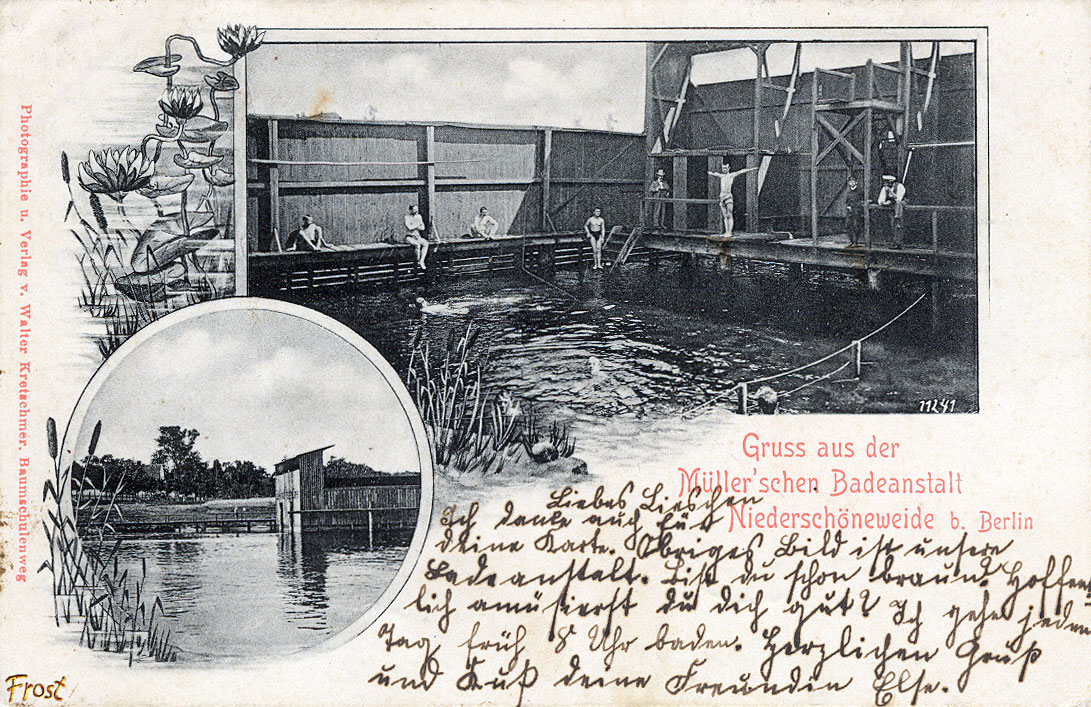 Photographie u. Verlag v. Walter Kretschmer, Baumschulenweg
11241
Gruss aus der
Müller'schen Badeanstalt
Niederschöneweide b. Berlin
Liebes Lieschen
Ich danke auch für
deine Karte. Obiges Bild ist unsere
Badeanstalt. Bist du schon braun? Hoffent
lich amüsierst du dich gut? Ich gehe jeden
Tag früh 8 Uhr baden. Herzlichen Gruß
und Kuß deine Freundin Else.
Frost